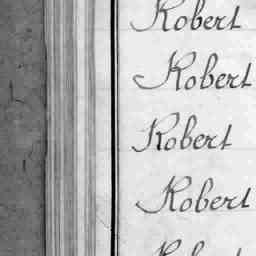 Robert
Robert
Robert
Robert